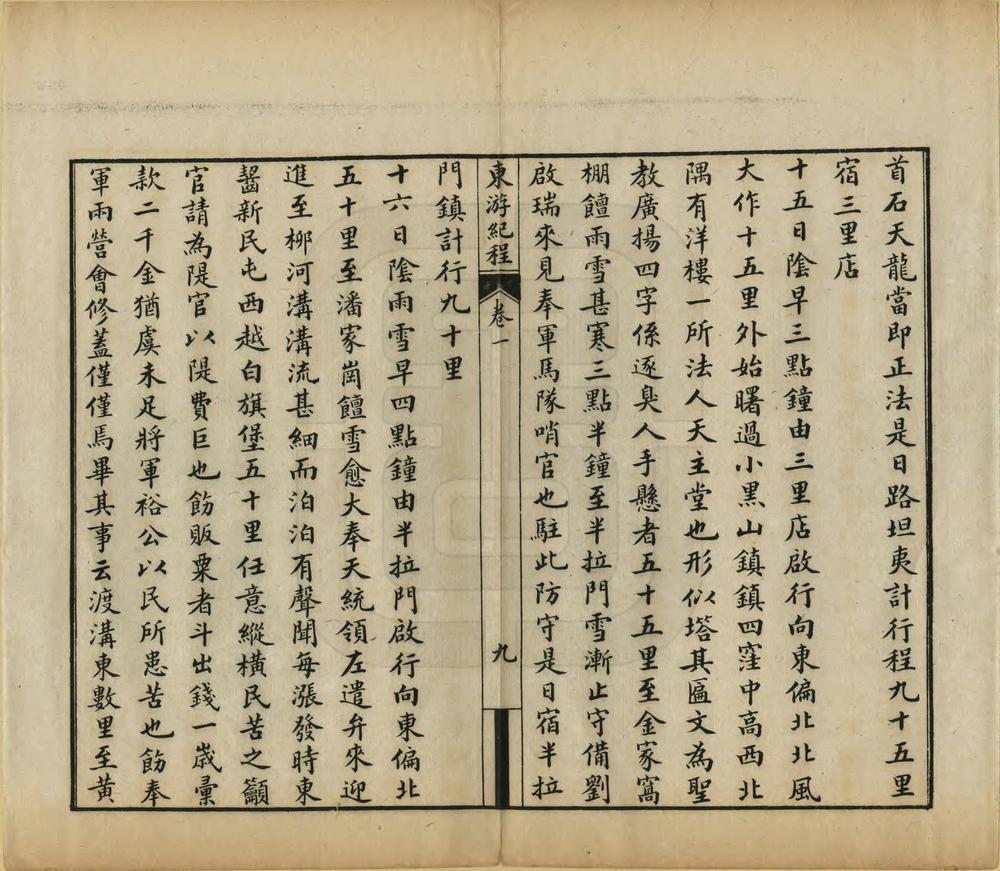 首石天龍當即正法是日路坦夷計行程九十五里
宿三里店
十五日陰早三點鐘由三里店啟行向東偏北北風
大作十五里外始曙過小黑山鎮鎮四窪中高西北
隅有洋樓一所法人天主堂也形似塔其匾文為聖
教廣揚四字係逐臭人手懸者五十五里至金家窩
棚饘雨雪甚寒三點半鐘至半拉門雪漸止守備劉
啟瑞來見奉軍馬隊哨官也駐此防守是日宿半拉
東游紀程
卷一
九
門鎮計行九十里
十六日陰雨雪早四點鐘由半拉門啟行向東偏北
五十里至潘家崗饘雪愈大奉天統領左遣弁來迎
進至柳河溝溝流甚細而泊泊有聲聞每漲發時東
齧新民屯西越白旗堡五十里任意縱橫民苦之籲
官請為隄官以隄費巨也飭販粟者斗出錢一歲彙
款二千金猶虞未足將軍裕公以民所患苦也飭奉
軍兩營會修蓋僅僅焉畢其事云渡溝東數里至黃